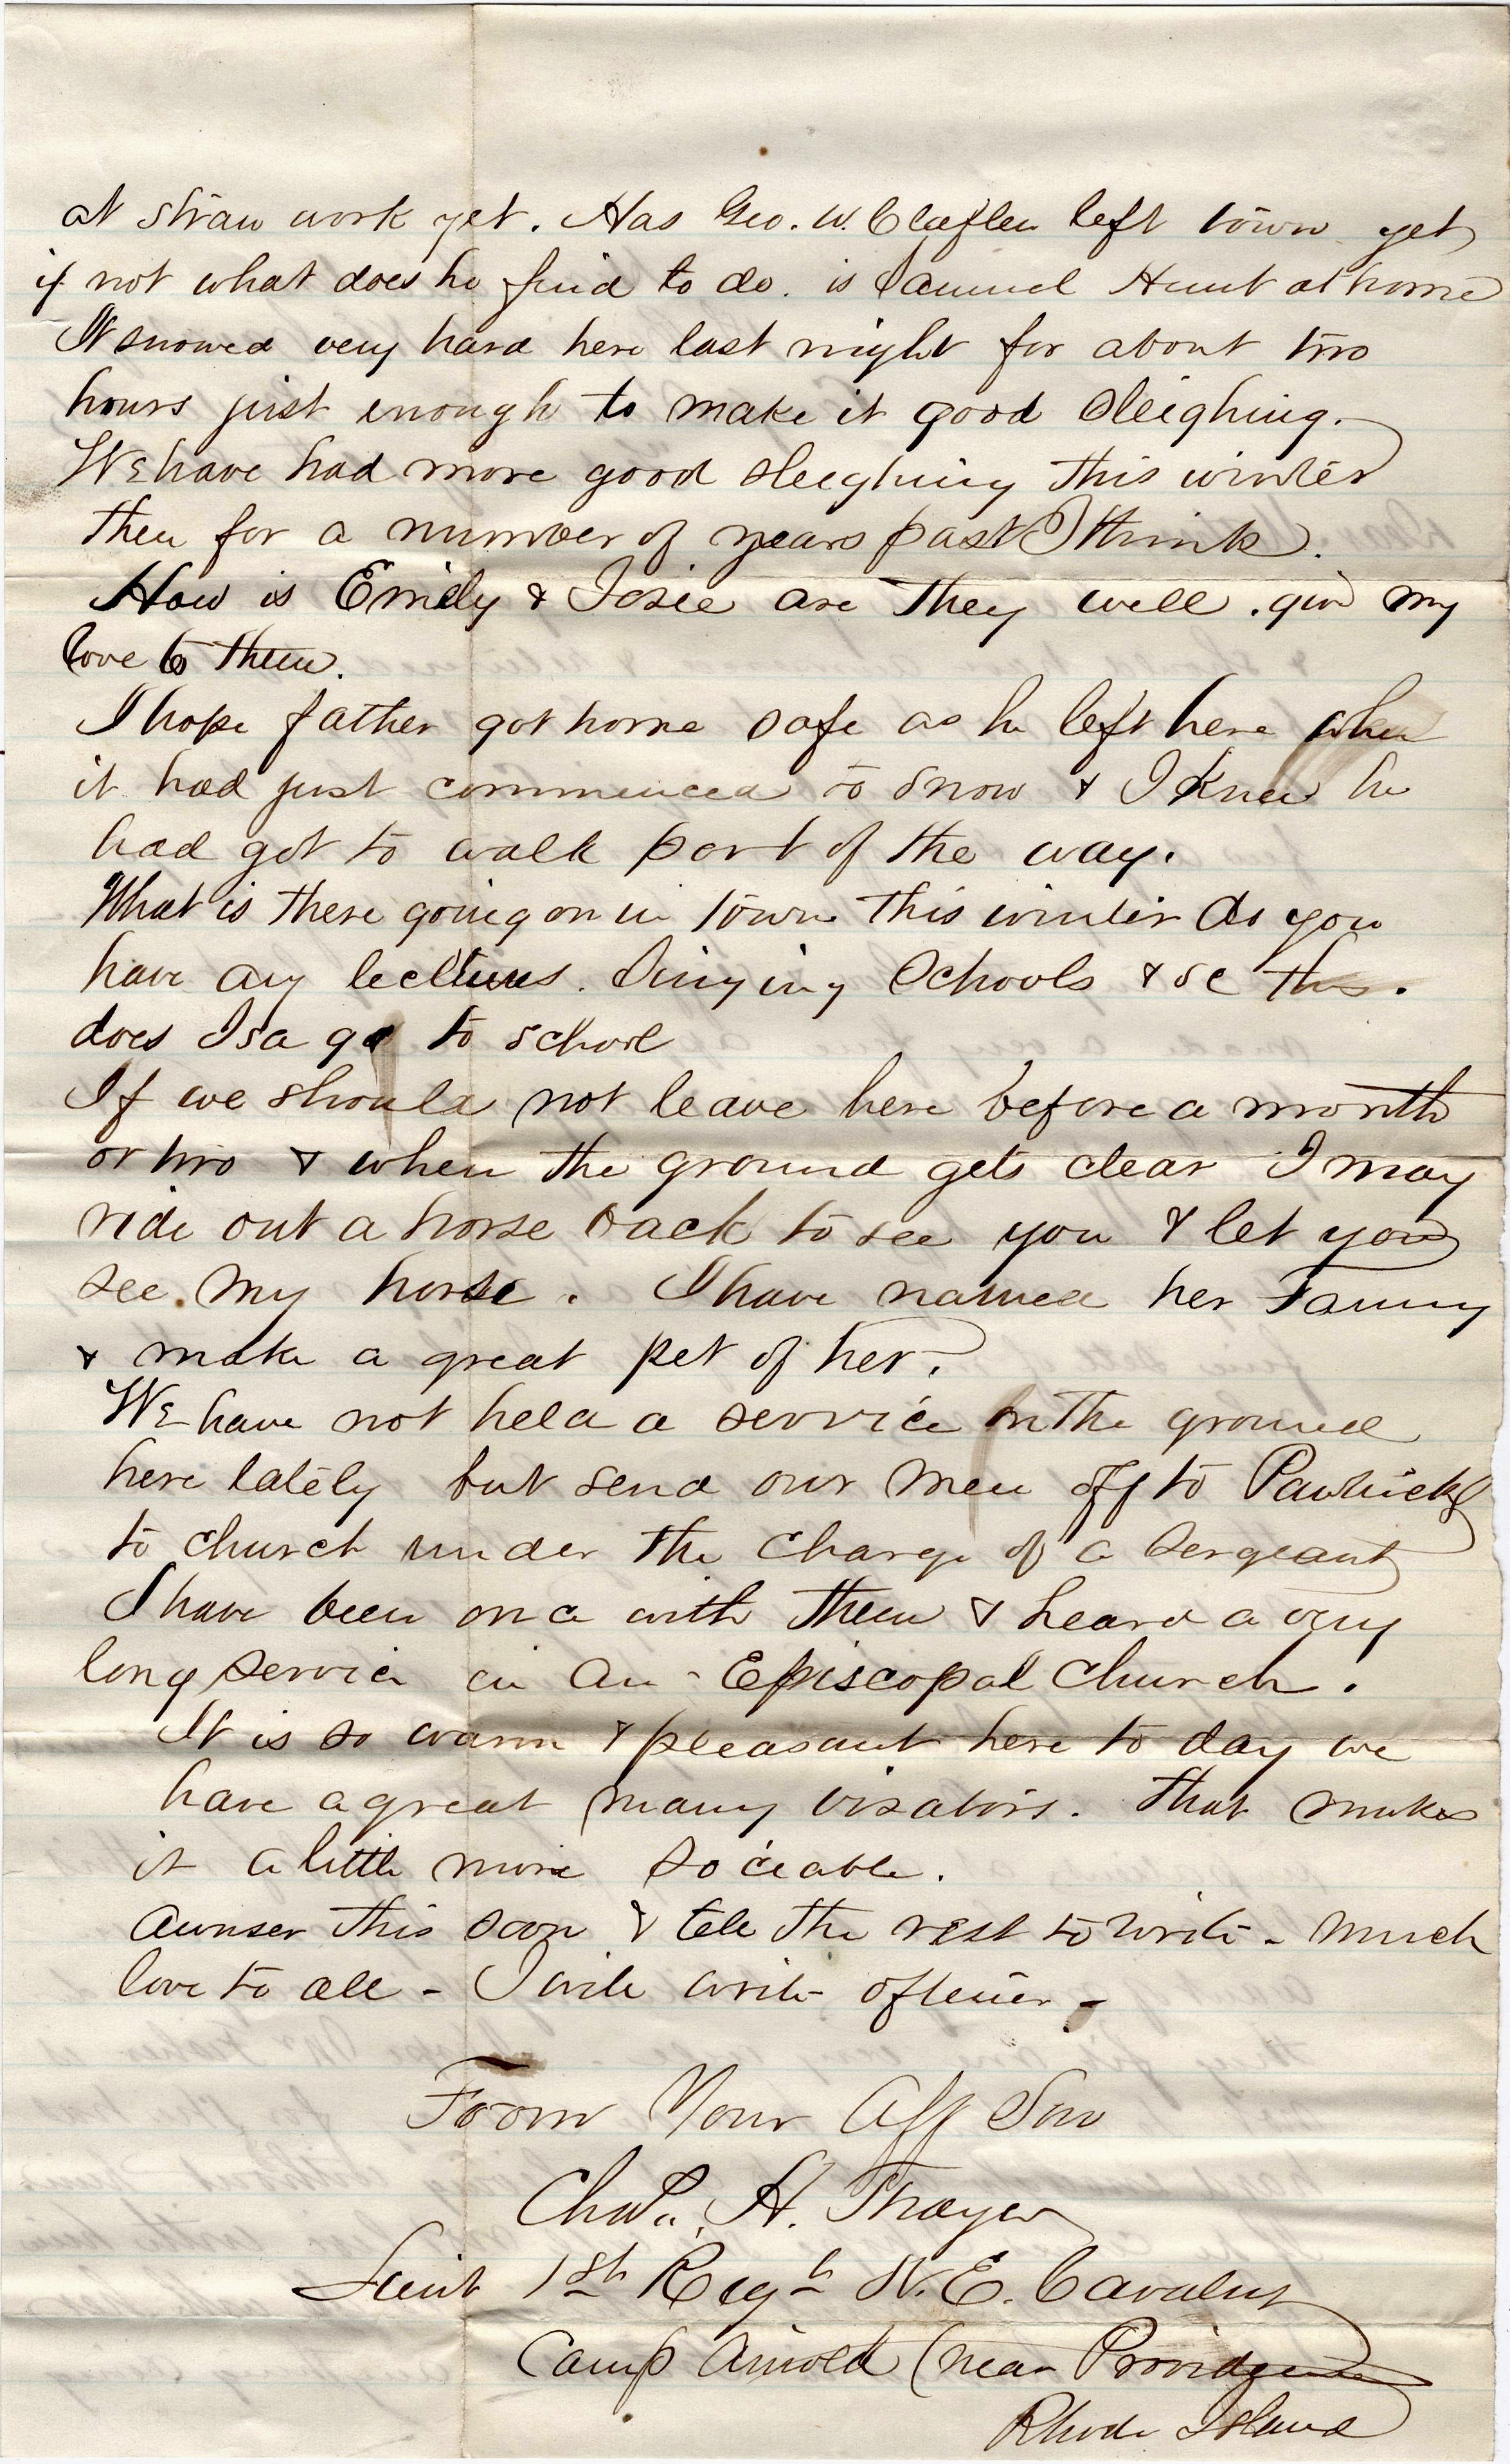 at straw work yet. Has Geo. W. Claflen left town yet
if not what does he find to do. is Samuel Hunt at home
It snowed very hard here last night for about two
hours just enough to make it good sleighing.
We have had more good sleeghing this winter
then for a number of years past I think.
How is Emily & Josie are they well. give my
love to them.
I hope father got home safe as he left here when
it had just commenced to snow & I knew he
had got to walk part of the way.
What is there going on in town this winter do you
have any lectures. Singing Schools & &c this.
does Isa go to school
If we should not leave here before a month
or two & when the ground gets clear I may
ride out a horse back to see you & let you
see my horse. I have named her Fanny
& make a great pet of her.
We have not held a service on the ground
here lately but send our men off to
to church under the charge of a Sergeant
I have been once with them & heard a very
long service in an Episcopal Church.
It is so warm & pleasant here to day we
have a great many visators. That makes
it a little more sociable.
Aunser this soon & tell the rest to write - much
love to all - I will write oftener -
From Your Aff Son
Chas. H. Thayer
Leiut 1st Regt N. E. Cavalry
Camp Arnold (near Providence
Rhode Island